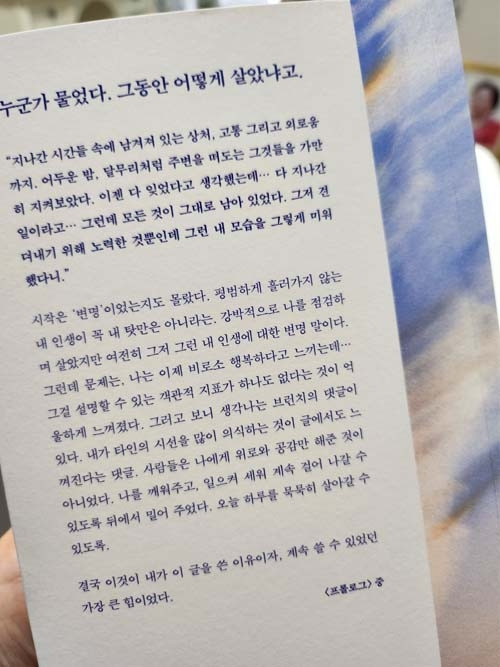 누군가 물었다. 그동안 어떻게 살았냐고.
“지나간 시간들 속에 남겨져 있는 상처, 고통 그리고 외로움
까지. 어두운 밤, 달무리처럼 주변을 떠도는 그것들을 가만
히 지켜보았다. 이젠 다 잊었다고 생각했는데… 다 지나간
일이라고… 그런데 모든 것이 그대로 남아 있었다. 그저 견
뎌내기 위해 노력한 것뿐인데 그런 내 모습을 그렇게 미워
했다니.”
시작은 ‘변명’이었는지도 몰랐다. 평범하게 흘러가지 않는
내 인생이 꼭 내 탓만은 아니라는. 강박적으로 나를 점검하
며 살았지만 여전히 그저 그런 내 인생에 대한 변명 말이다.
그런데 문제는, 나는 이제 비로소 행복하다고 느끼는데…
그걸 설명할 수 있는 객관적 지표가 하나도 없다는 것이 억
울하게 느껴졌다. 그러고 보니 생각나는 브런치의 댓글이
있다. 내가 타인의 시선을 많이 의식하는 것이 글에서도 느
껴진다는 댓글. 사람들은 나에게 위로와 공감만 해준 것이
아니었다. 나를 깨워주고, 일으켜 세워 계속 걸어 나갈 수
있도록 뒤에서 밀어 주었다. 오늘 하루를 묵묵히 살아갈 수
있도록.
결국 이것이 내가 이 글을 쓴 이유이자, 계속 쓸 수 있었던
가장 큰 힘이었다.
〈프롤로그〉 중